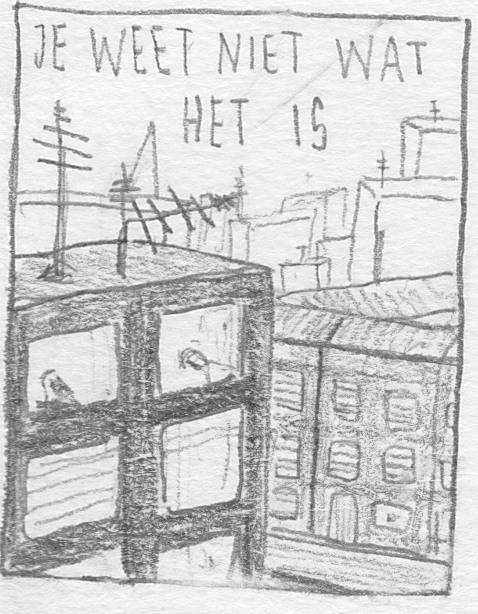 JE WEET NIET WAT
HET IS